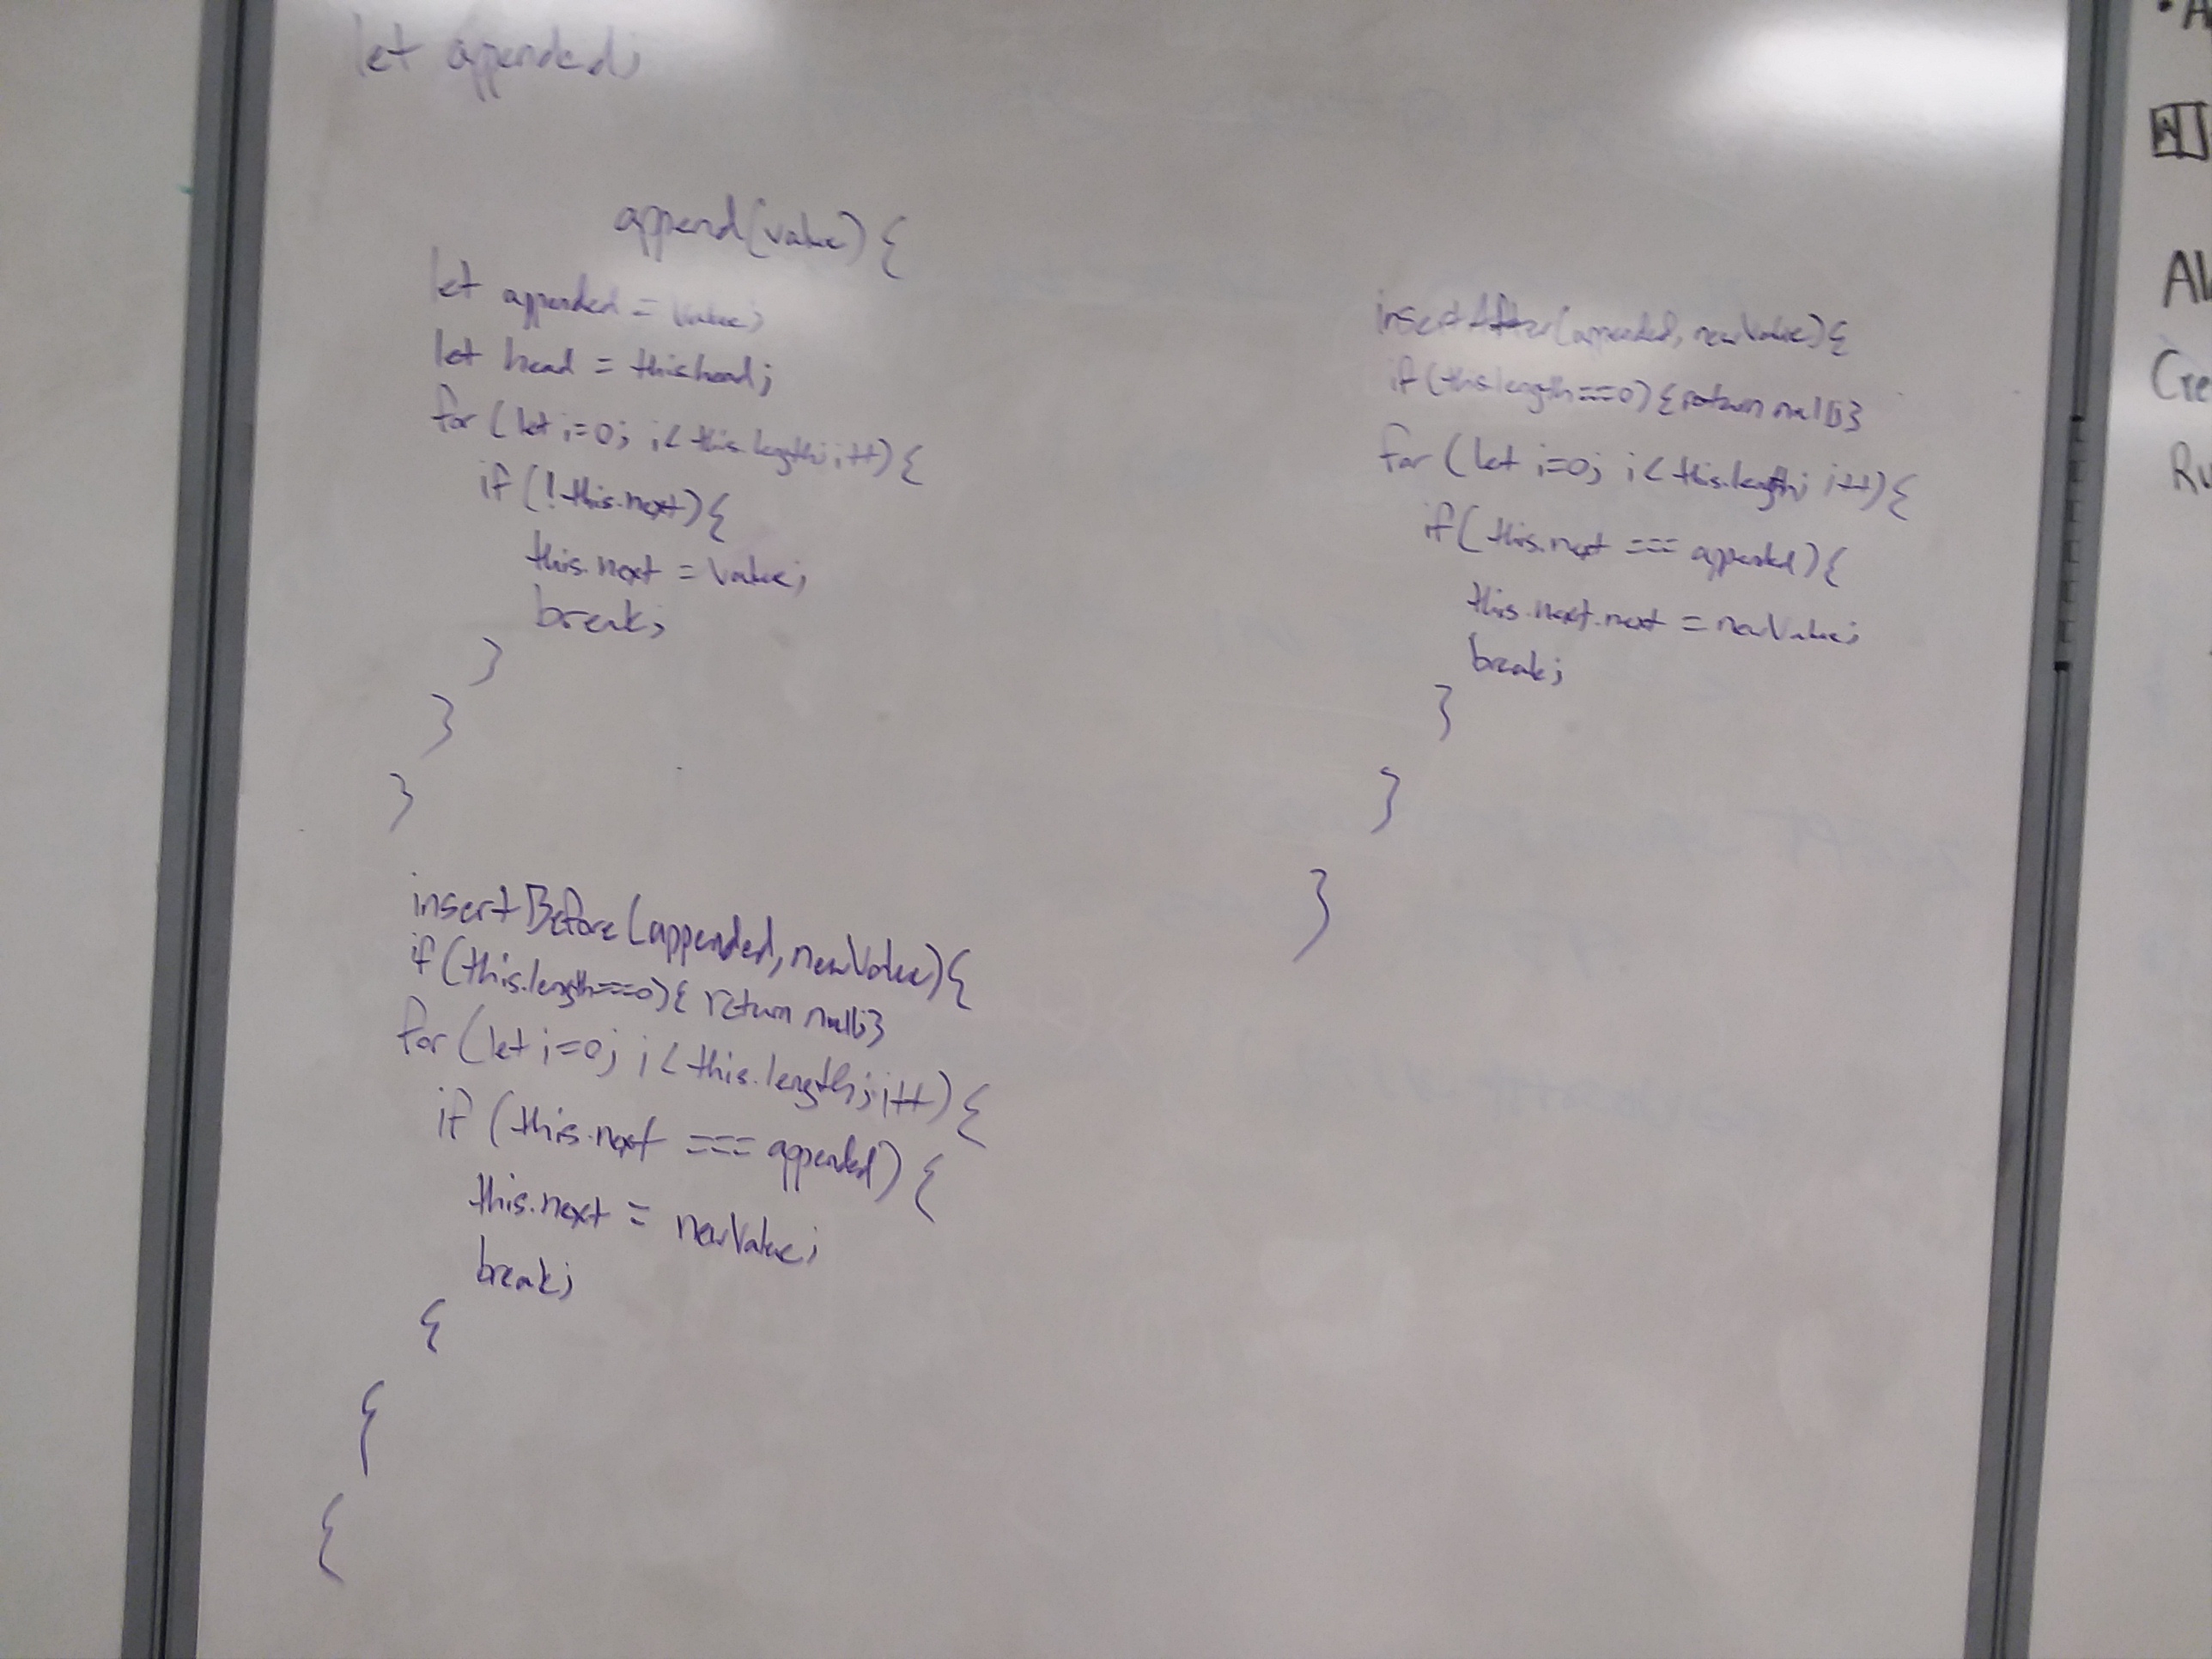 let appended;
append(value) {
let appended = value;
let head = this.head;
for (let i=0; i < this.length; i++) {
if (!this.next) {
this.next = value;
break;
}
}
}
insertBefore(appended, newValue) {
if (this.length===0) { return null; }
for (let i=0; i < this.length; i++) {
if (this.next === appended) {
this.next = newValue;
break;
{
{
{
insertAfter(appended, newValue) {
if (this.length===0) { return null; }
for (let i=0; i < this.length; i++) {
if (this.next === appended) {
this.next.next = newValue;
break;
}
}
}